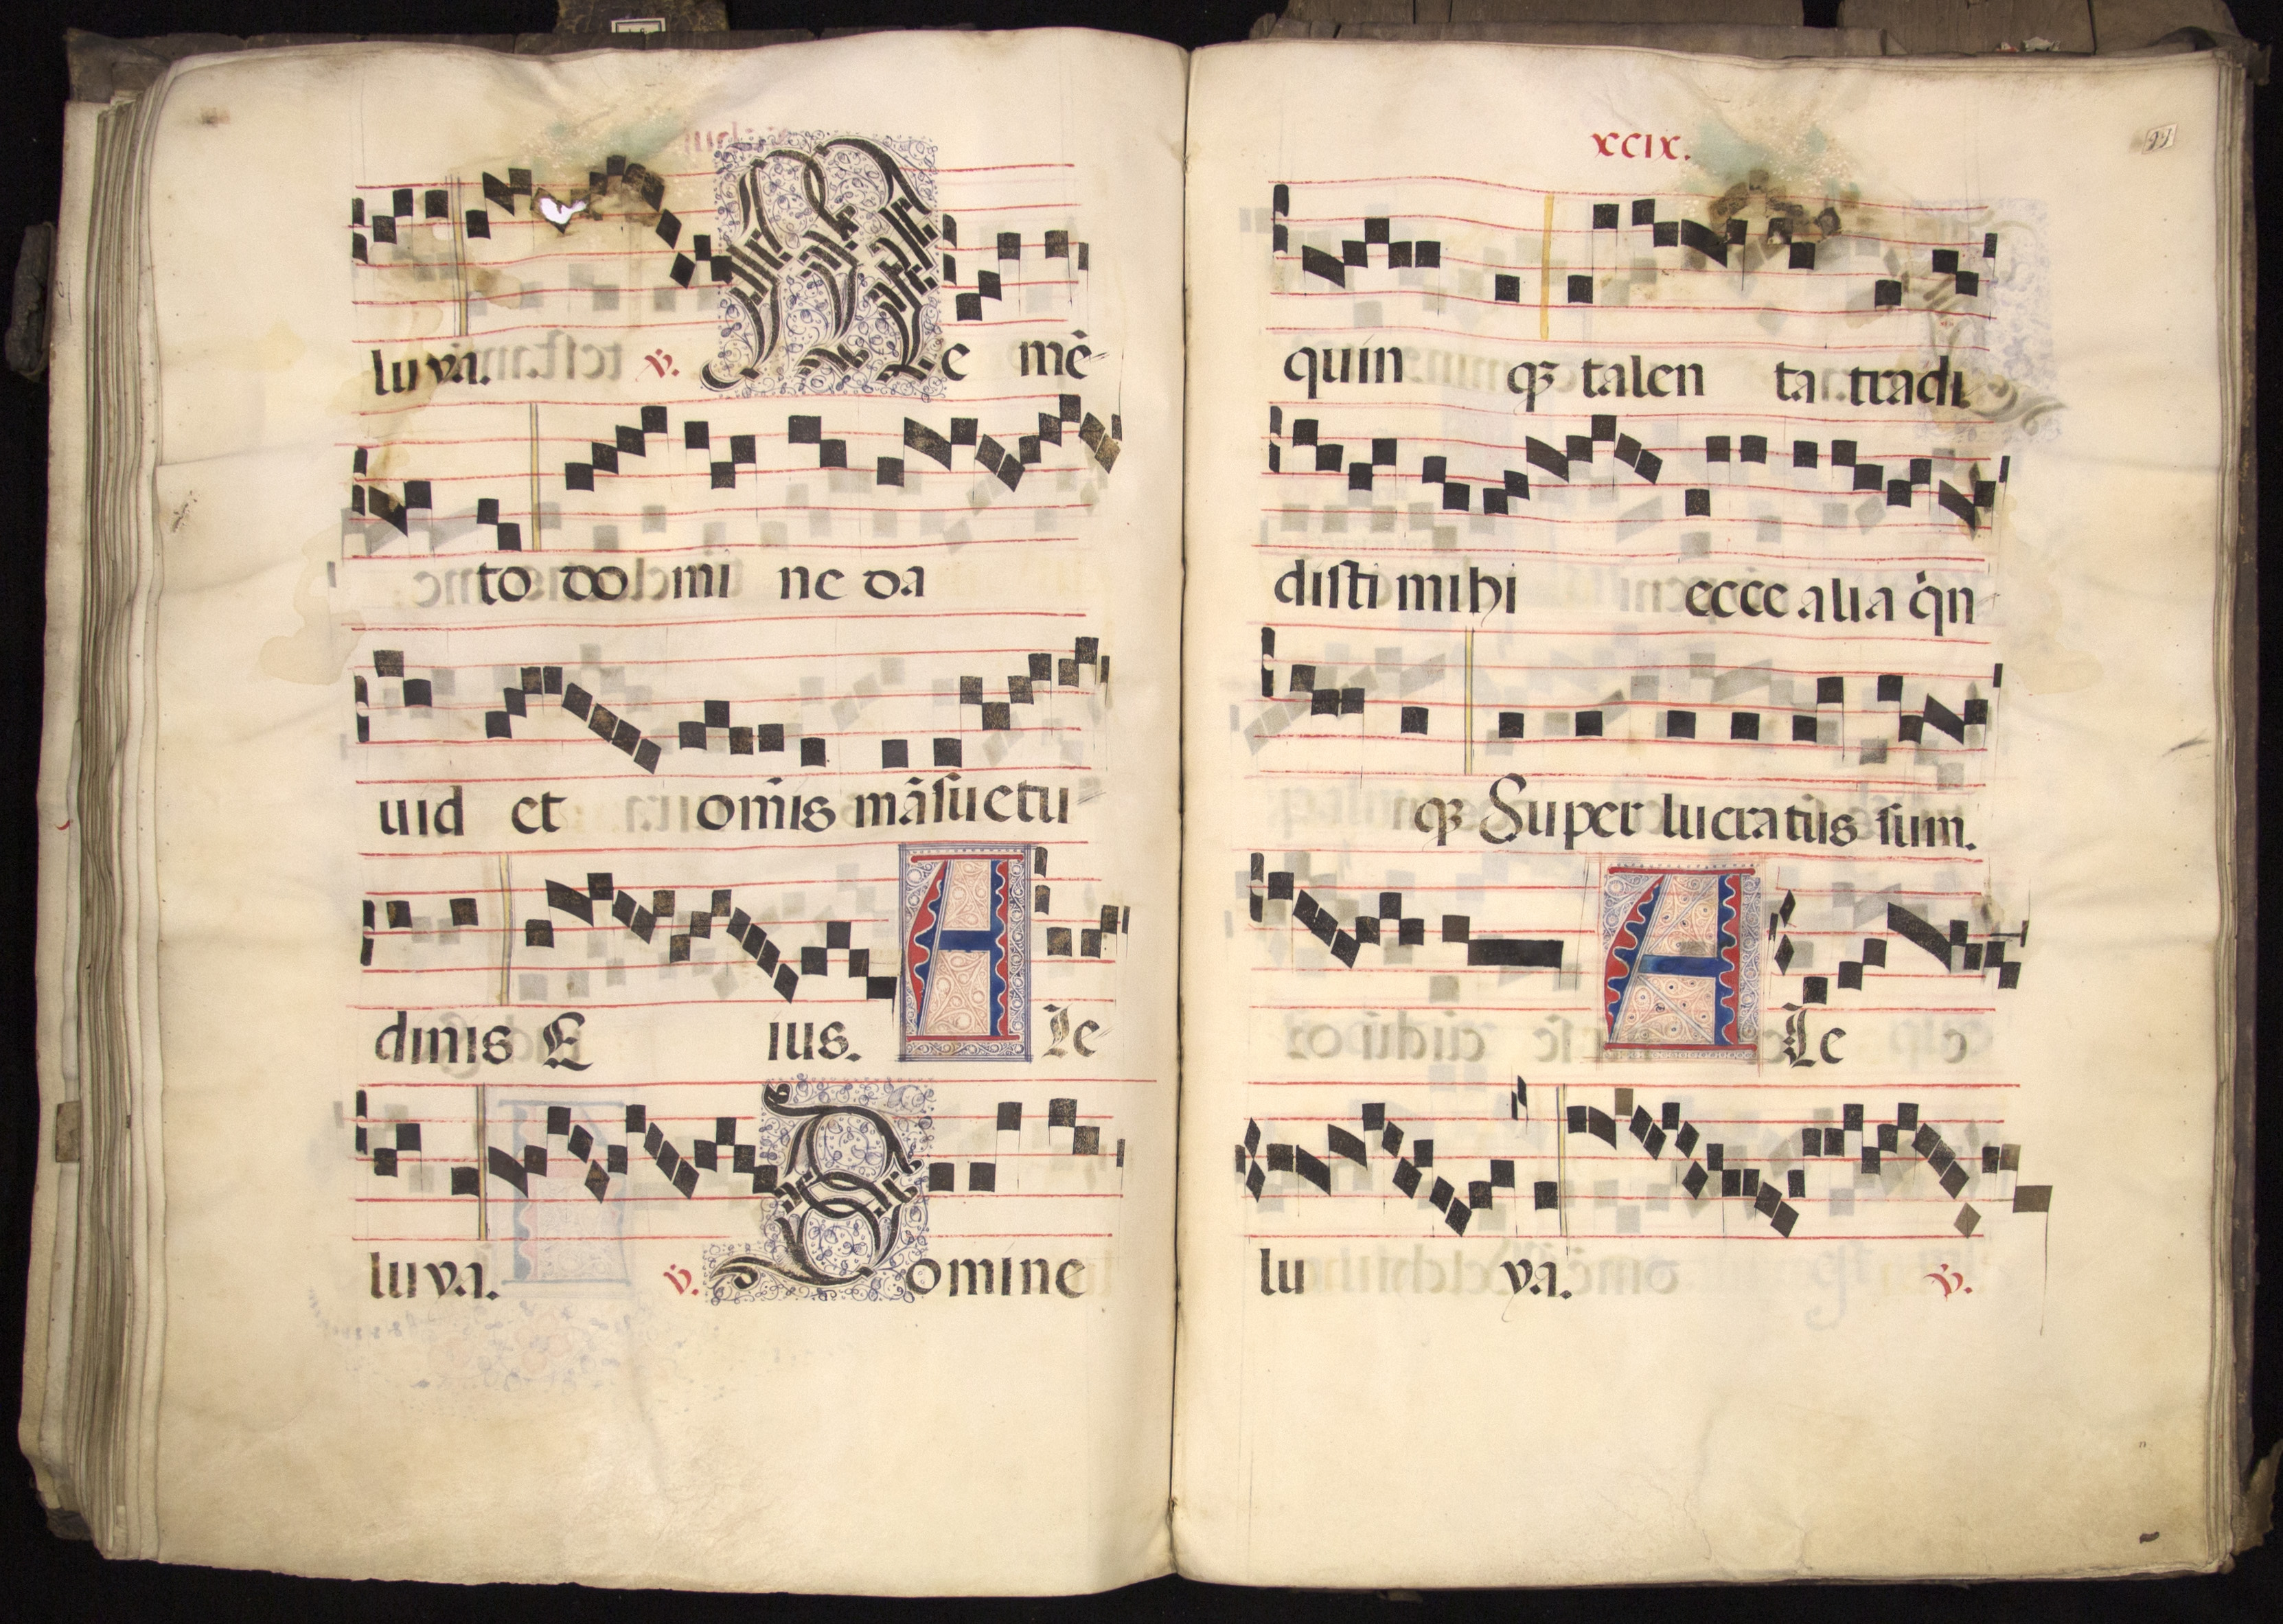 lu ya. v. Me mē-
to do mi ne da
uid et om̄is māsuetu
dinis E ius. A le
lu ya. v. Domine
xcix.
99
quin qꝫ talen ta tradi
disti mihi ecce alia qͥn
qꝫ Super lucratus sum.
A le
lu ya. v.